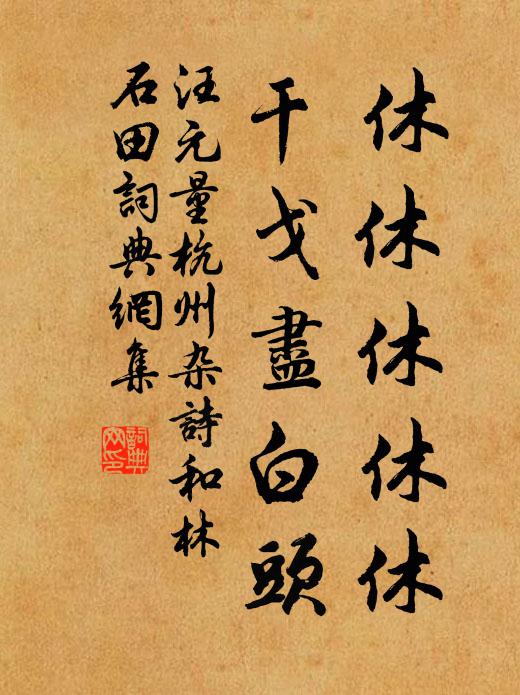 休休休休休
干戈盡白頭
汪元量杭州杂詩和林
石田詞典網集
詞典
网印